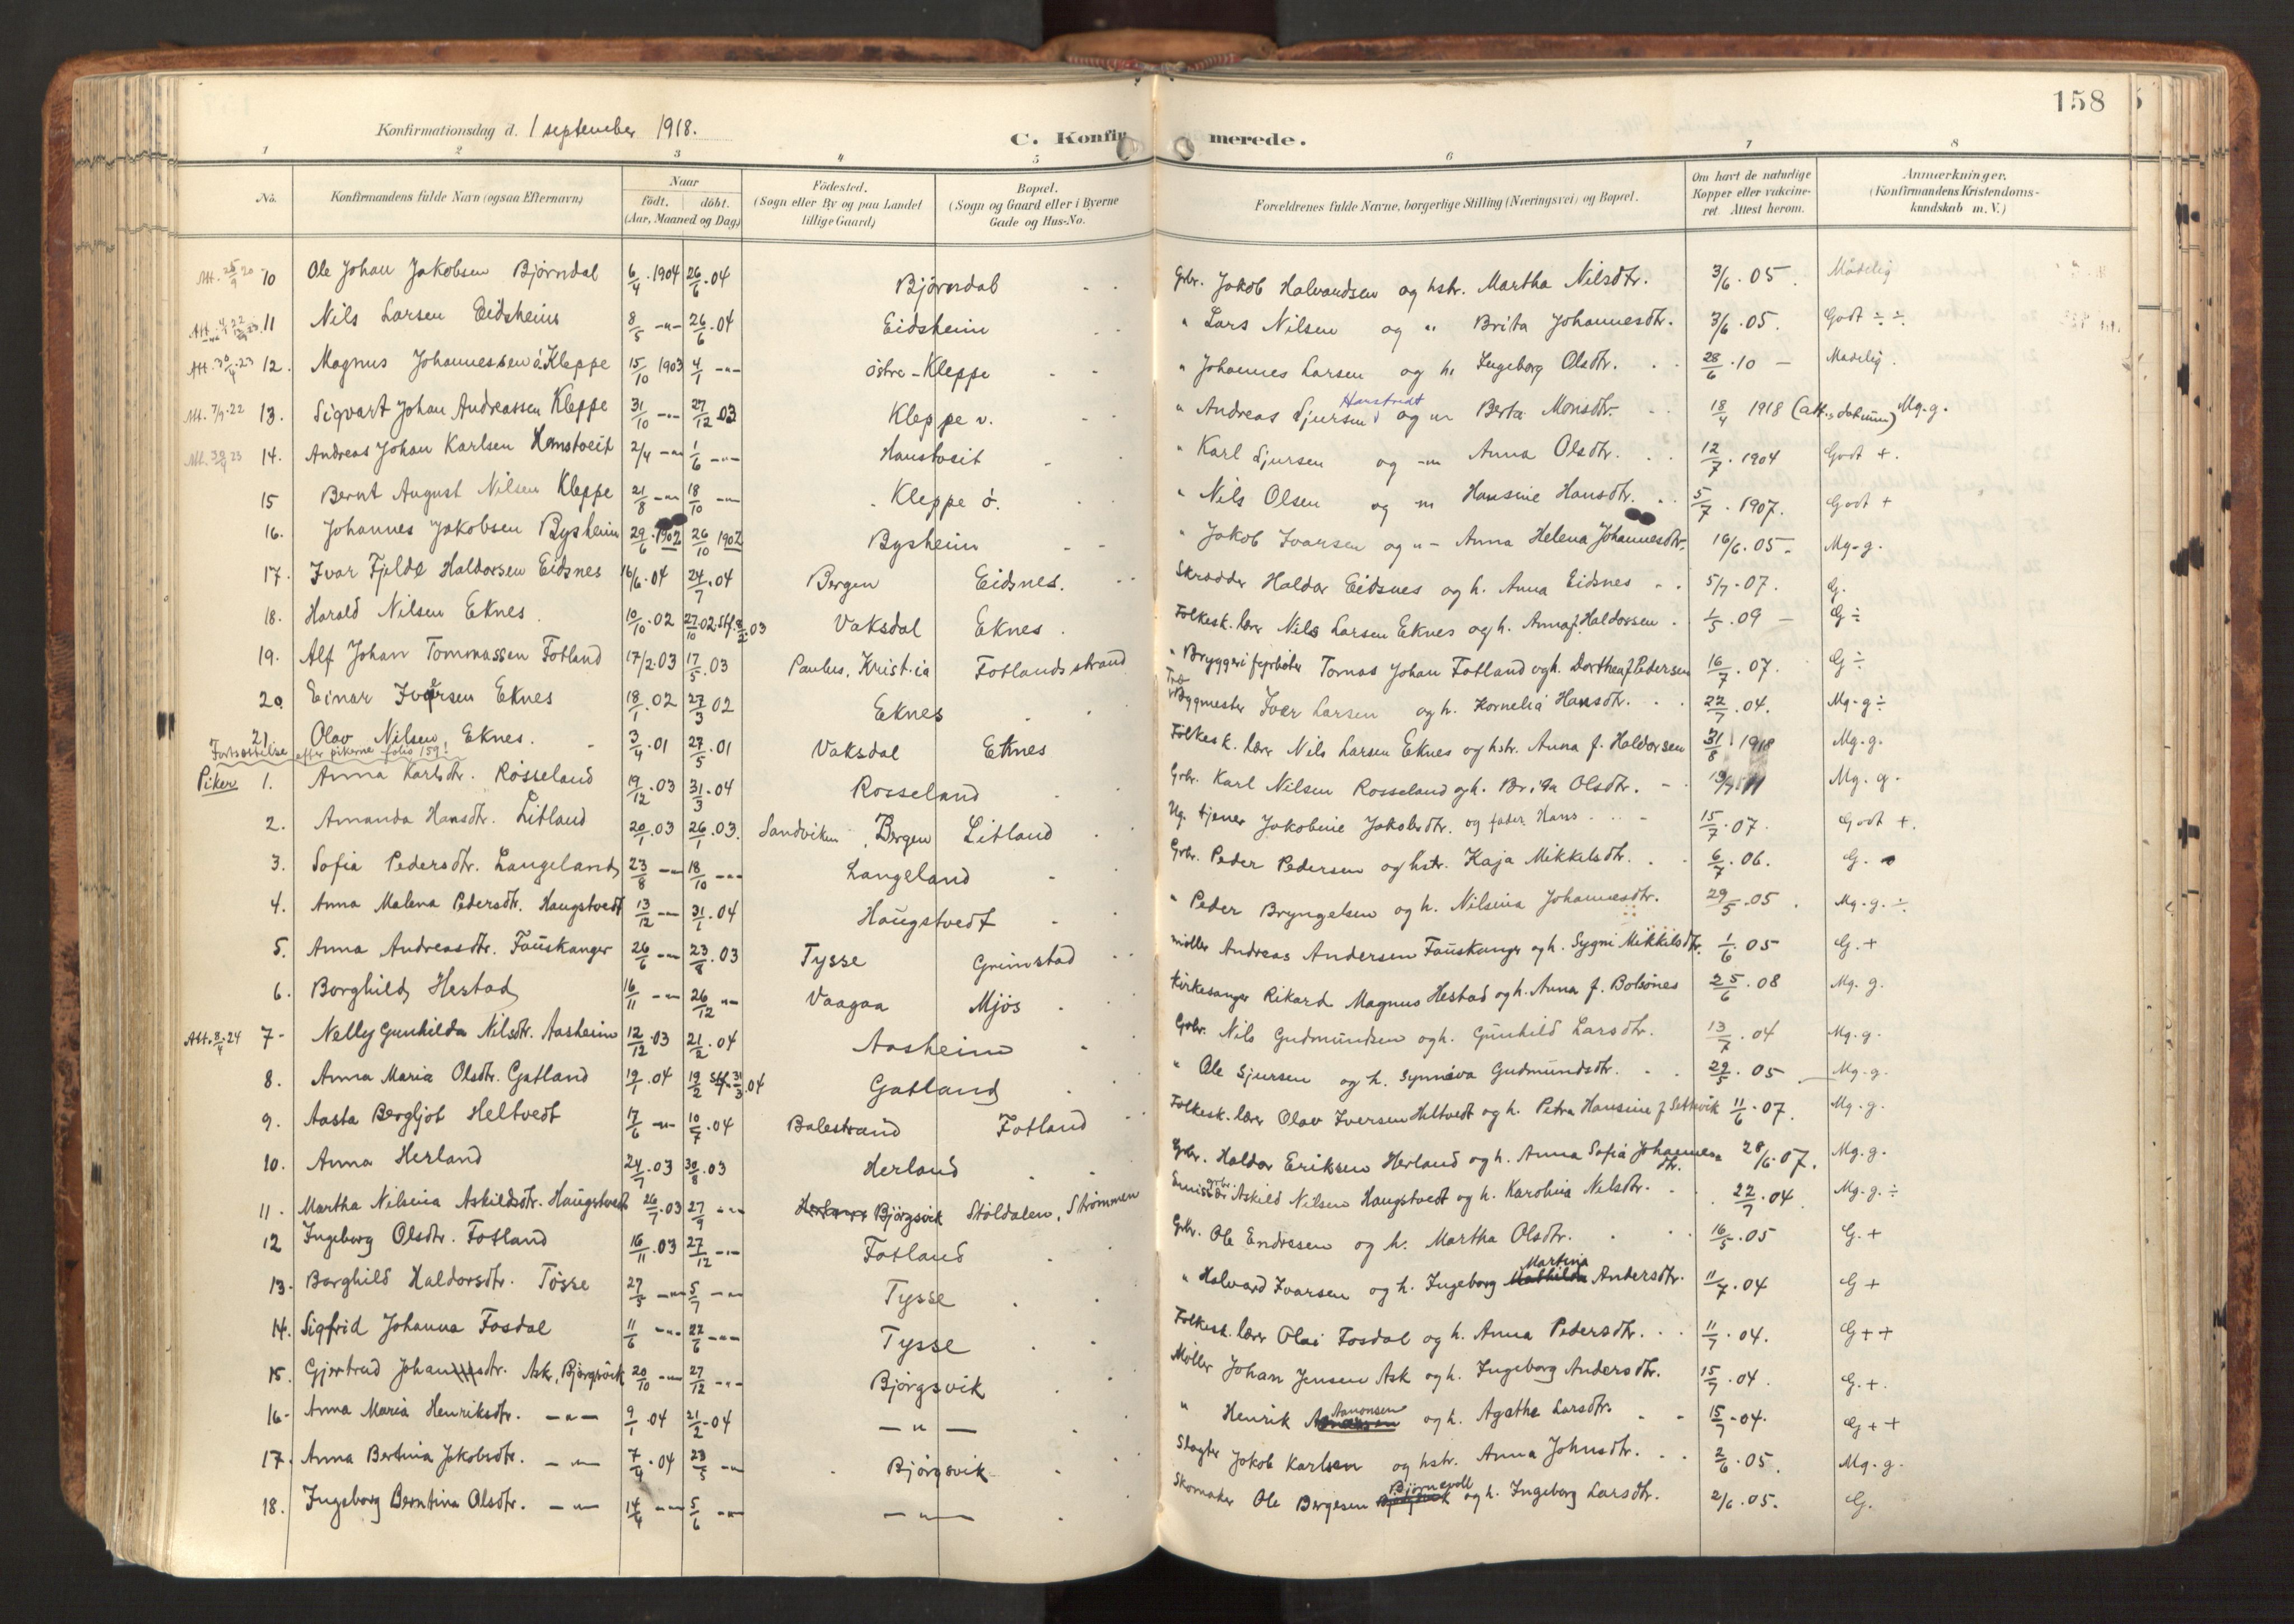 158
Konfirmationsdag d. 1 september 1918.
C. Konfirmerede.
1 2 3 4 5 6 7 8
No. Konfirmandens fulde Navn (ogsaa Efternavn) Naar födt. döbt. (Aar, Maaned og Dag) Födested. (Sogn eller By og paa Landet tillige Gaard) Bopæl. (Sogn og Gaard eller i Byerne Gade og Hus-No. Forældrenes fulde Navne, borgerlige Stilling (Næringsvei) og Bopæl. Om havt de naturlige Kopper eller vakcineret. Attest herom. Anmærkninger. (Konfirmandens Kristendomskundskab m. V.)
10 Ole Johan Jakobsen Bjørndal 6/4 . 1904 26/6 . 04 Bjørndal Gbr. Jakob Halvardsen og hstr. Martha Nilsdtr. 3/6 . 05. Mådelig
11 Nils Larsen Eidsheim 8/5 -"- 26/6 . 04 Eidsheim " Lars Nilsen og " Brita Johannesdtr. 3/6 . 05. Godt ÷ ÷
Att. 30/4 . 23 12. Magnus Johannessen ö. Kleppe 15/10 1903 4/1 -"- östre - Kleppe " Johannes Larsen og h. Ingeborg Olsdtr. 28/6 . 10 - Madelig.
Att. 7/9 . 22 13. Sigvart Johan Andreassen Kleppe 31/10 -"- 27/12 03 Kleppe v. " Andreas Sjursen Hanstvedt og " Berta Monsdtr. 18/4 1918 (att.s datum) Mg.g.
14. Andreas Johan Karlsen Hanstveit 2/4 -"- 1/6 -"- Hanstveit " Karl Sjursen og -"- Anna Olsdtr. 12/7 . 1904 Godt +.
15 Bernt August Nilsen Kleppe 21/8 -"- 18/10 -"- Kleppe ö. " Nils Olsen og -"- Hansine Hansdtr. 5/7 . 1907. Godt +
16. Johannes Jakobsen Bysheim 29/6 . 1902 26/10 1902 Bysheim " Jakob Ivarsen og -"- Anna Helena Johannesdtr. 16/6 . 05. Mg-g.
17. Ivar Fjelde Haldorsen Eidsnes 16/6 . 04 24/7 . 04 Bergen Eidsnes. Skrædder Haldor Eidsnes og h. Anna Eidsnes 5/7 . 07. G.
18. Harald Nilsen Eknes. 10/10 . 02 27/10 . 02. Stf. 8/2 . 03 Vaksdal Eknes. Folkesk. lærer Nils Larsen Eknes og h. Anna f. Haldorsen. 1/5 . 09 - G ÷
19. Alf Johan Tommassen Fotland 17/2 . 03 17/5 . 03 Paulus, Krist.ia Fotlandsstrand " Bryggeri fyrböter Tomas Johan Fotland og h. Dorthea f. Pedersen 16/7 . 07. G ÷
20. Einar Iversen Eknes 18/1 . 02 27/3 02 Eknes Bygmester Iver Larsen og h. Kornelia Hansdtr. 22/7 . 04. Mg-g ÷
21. Olav Nilsen Eknes. 3/4 . 01 27/5 . 01 Vaksdal Eknes Folkesk. lærer Nils Larsen Eknes og hstr. Anna f. Haldorsen 31/8 1918 Mg.g.
Fortsættelse efter pikerne folio 159!
Piker 1. Anna Karlsdtr. Rosseland 19/12 . 03 31/3 . 04 Rosseland Gbr. Karl Nilsen Rosseland og h. Brita Olsdtr. Mg. g.
2. Amanda Hansdtr. Litland 20/1 . 03 26/1 . 03. Sandviken, Bergen Litland Ug. tjener Jakobine Jakobsdtr. og fader Hans 15/7 . 07. Godt +.
3. Sofia Pedersdtr. Langeland 23/8 -"- 18/10 -"- Langeland Gbr. Peder Pedersen og hstr. Kaja Mikkelsdtr. 6/7 . 06. G.
4. Anna Malena Pedersdtr. Haugstvedt 13/12 -"- 31/1 . 04 Haugstvedt " Peder Bryngelsen og h. Nilsina Johannesdtr. 29/5 . 05. Mg.g. ÷
5. Anna Andreasdtr. Fauskanger 26/6 -"- 23/8 . 03 Tysse Grimstad möller Andreas Andersen Fauskanger og h. Sygni Mikkelsdtr. 1/6 . 05 G. +
6. Borghild Hestad 16/11 -"- 26/12 -"- Vaagaa Mjös Kirkesanger Rikard Magnus Hestad og h. Anna f. Bolsönes 25/6 . 08 Mg. g.
Att. 8/4 . 24 7. Nelly Gunhilda Nilsdtr. Aasheim 12/12 . 03 21/2 . 04 Aasheim Gbr. Nils Gudmundsen og h. Gunhild Larsdtr. 13/7 . 04 Mg.g.
8. Anna Maria Olsdtr. Gatland 19/1 . 04 19/2 Stf. 31/3 . 04 Gatland " Ole Sjursen og h. Synnöva Gudmundsdtr. 29/5 . 05 Mg.g.
9. Aasta Bergljot Heltvedt 17/6 -"- 10/7 . 04 Balestrand Fotland Folkesk. lærer Olav Iversen Heltvedt og h. Petra Hansine f. Settevik 11/6 . 07. Mg.g.
10. Anna Herland 24/7 . 03 30/8 . 03 Herland Gbr. Haldor Eriksen Herland og h. Anna Sofia Johannesdtr. 28/6 . 07. Mg.g.
11. Martha Nilsina Askildsdtr. Haugstvedt 26/7 . 03 27/9 -"- Herland Bjørgsvik Stöldalen, Strømmen Emissær gbr. Askild Nilsen Haugstvedt og h. Karolina Nilsdtr. 22/7 . 04. Mg.g. ÷
12 Ingeborg Olsdtr. Fotland 16/11 . 03 27/12 -"- Fotland Gbr. Ole Endresen og h. Martha Olsdtr. 16/5 . 05 G. +
13. Borghild Haldorsdtr. Tösse 27/5 -"- 5/7 -"- Tysse " Halvard Ivarsen og h. Ingeborg Mathilda Martina Andersdtr. 11/7 . 04 G +
14. Sigfrid Johanna Fosdal 11/6 -"- 22/6 -"- Tysse Folkesk. lærer Olai Fosdal og h. Anna Pedersdtr. 11/7 . 04. G + +
15. Gjertrud Johansdtr. Ask, Bjørgsvik 20/10 -"- 27/12 -"- Bjørgsvik Möller Johan Jensen Ask og h. Ingeborg Andersdtr. 15/7 . 04. G. +.
16. Anna Maria Henriksdtr. -"- 9/1 . 04 21/2 . 04 -"- " Henrik Aanonsen og h. Agathe Larsdtr. 15/7 . 04. G + +
17. Anna Bertina Jakobsdtr. -"- 7/4 . 04 23/5 -"- Bjørgsvik Slagter Jakob Karlsen og hstr. Anna Johnsdtr. 2/6 . 05. Mg.g.
18. Ingeborg Berntina Olsdtr. -"- 14/4 -"- 5/6 -"- -"- Skomaker Ole Børgesen Bjørnevoll og h. Ingeborg Larsdtr. 2/6 . 05. G.